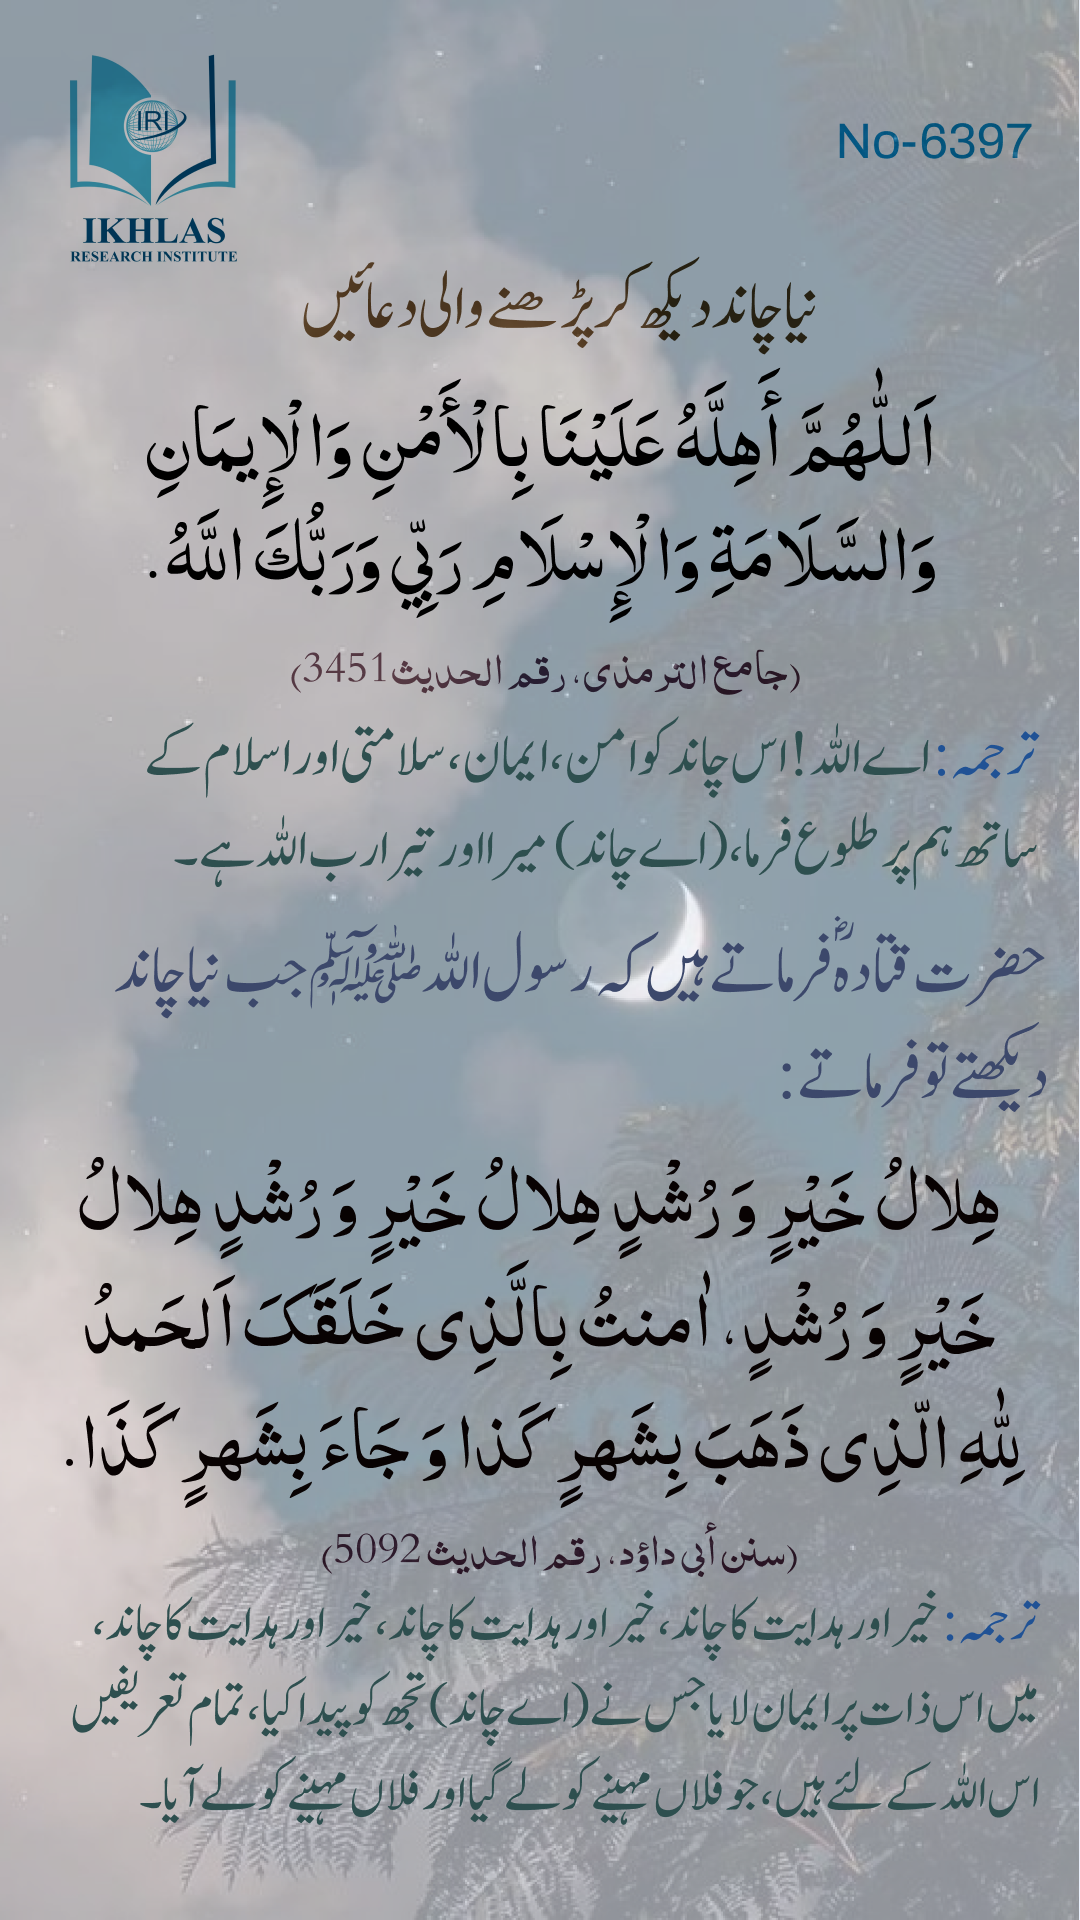 IRI
IKHLAS
RESEARCH INSTITUTE
No-6397
نیا چاند دیکھ کر پڑھنے والی دعائیں
اَللّٰهُمَّ أَهِلَّهُ عَلَيْنَا بِالْأَمْنِ وَالْإِيمَانِ
وَالسَّلَامَةِ وَالْإِسْلَامِ رَبِّي وَرَبُّكَ اللَّهُ.
(جامع الترمذی، رقم الحدیث3451)
ترجمہ: اے اللہ! اس چاند کو امن، ایمان، سلامتی اور اسلام کے
ساتھ ہم پر طلوع فرما،(اے چاند) میرا اور تیرا رب اللہ ہے۔
حضرت قتادہؓ فرماتے ہیں کہ رسول اللہ ﷺ جب نیا چاند
دیکھتے تو فرماتے:
هِلالُ خَيْرٍ وَ رُشْدٍ هِلالُ خَيْرٍ وَ رُشْدٍ هِلالُ
خَيْرٍ وَ رُشْدٍ، اٰمنتُ بِالَّذِی خَلَقَکَ اَلحَمدُ
لِلّٰهِ الّذِی ذَهَبَ بِشَهرٍ کَذا وَ جَاءَ بِشَهرٍ کَذَا.
(سنن أبی داؤد، رقم الحدیث 5092)
ترجمہ: خیر اور ہدایت کا چاند، خیر اور ہدایت کا چاند، خیر اور ہدایت کا چاند،
میں اس ذات پر ایمان لایا جس نے (اے چاند) تجھ کو پیدا کیا، تمام تعریفیں
اس اللہ کے لئے ہیں، جو فلاں مہینے کو لے گیا اور فلاں مہینے کو لے آیا۔